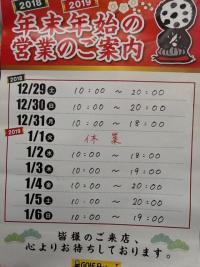 2018 2019
年末年始の
営業のご案内
2018
12/29 土 10:00 ～ 20:00
12/30 日 10:00 ～ 20:00
12/31 月 10:00 ～ 18:00
2019
1/1 火 休業
1/2 水 10:00 ～ 18:00
1/3 木 10:00 ～ 19:00
1/4 金 10:00 ～ 20:00
1/5 土 10:00 ～ 20:00
1/6 日 10:00 ～ 19:00
皆様のご来店、
心よりお待ちしております。